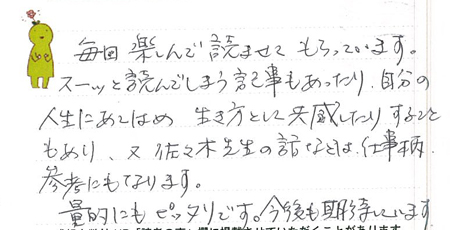 毎回楽しんで読ませてもらっています。
スーッと読んでしまう記事もあったり、自分の
人生にあてはめ 生き方として共感したりすること
もあり、又 佐々木先生の話などは、仕事柄、
参考にもなります。
量的にもピッタリです。今後も期待しています